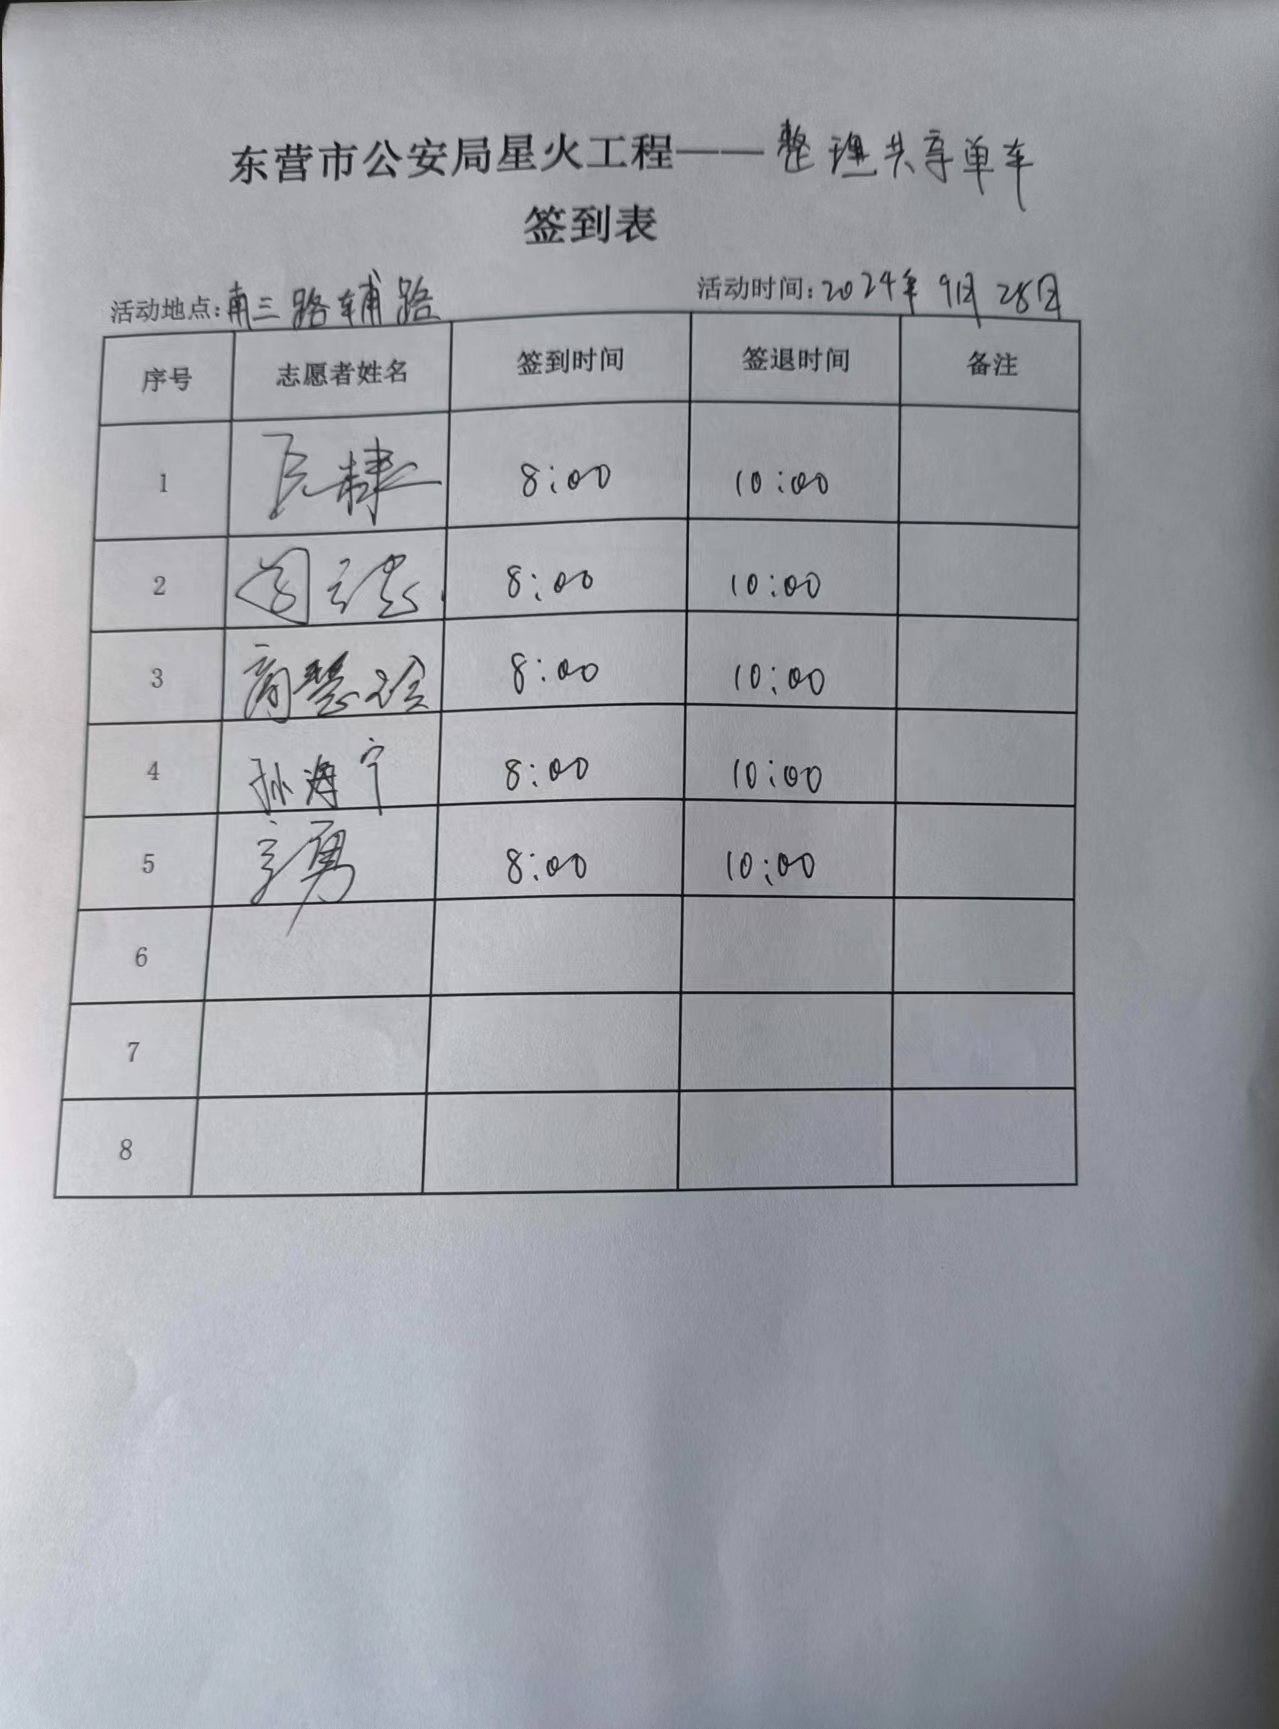 东营市公安局星火工程——整理共享单车
签到表
活动地点:南三路辅路 活动时间:2024年9月28日
序号 志愿者姓名 签到时间 签退时间 备注
1 8:00 10:00
2 8:00 10:00
3 商慧玲 8:00 10:00
4 孙海宁 8:00 10:00
5 8:00 10:00
6
7
8